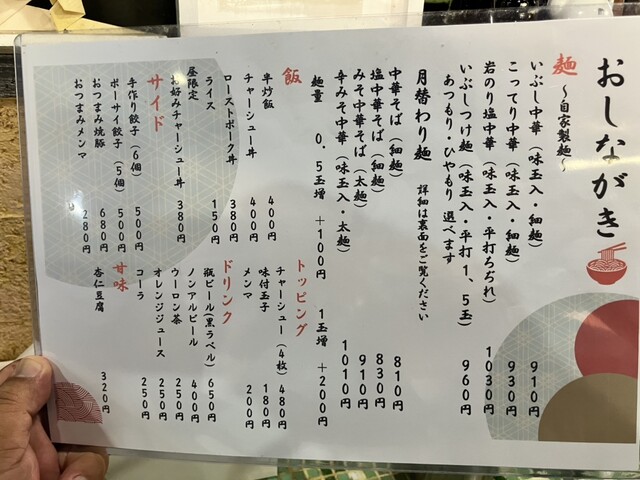 おしながき
麺 〜自家製麺〜
いぶし中華（味玉入・細麺） 910円
こってり中華（味玉入・細麺） 930円
岩のり塩中華（味玉入・平打ちぢれ） 1030円
いぶしつけ麺（味玉入・平打1、5玉） 960円
あつもり・ひやもり 選べます
月替わり麺 詳細は裏面をご覧ください
中華そば（細麺） 810円
塩中華そば（細麺） 830円
みそ中華そば（太麺） 910円
辛みそ中華（味玉入・太麺） 1010円
麺量 0.5玉増 +100円 1玉増 +200円
飯
半炒飯 400円
チャーシュー丼 400円
ローストポーク丼 380円
ライス 150円
昼限定
お好みチャーシュー丼 380円
サイド
手作り餃子（6個） 500円
ポーサイ餃子（5個） 500円
おつまみ焼豚 680円
おつまみメンマ 280円
トッピング
チャーシュー（4枚） 480円
味付玉子 180円
メンマ 200円
ドリンク
瓶ビール(黒ラベル) 650円
ノンアルビール 400円
ウーロン茶 250円
オレンジジュース 250円
コーラ 250円
甘味
杏仁豆腐 320円